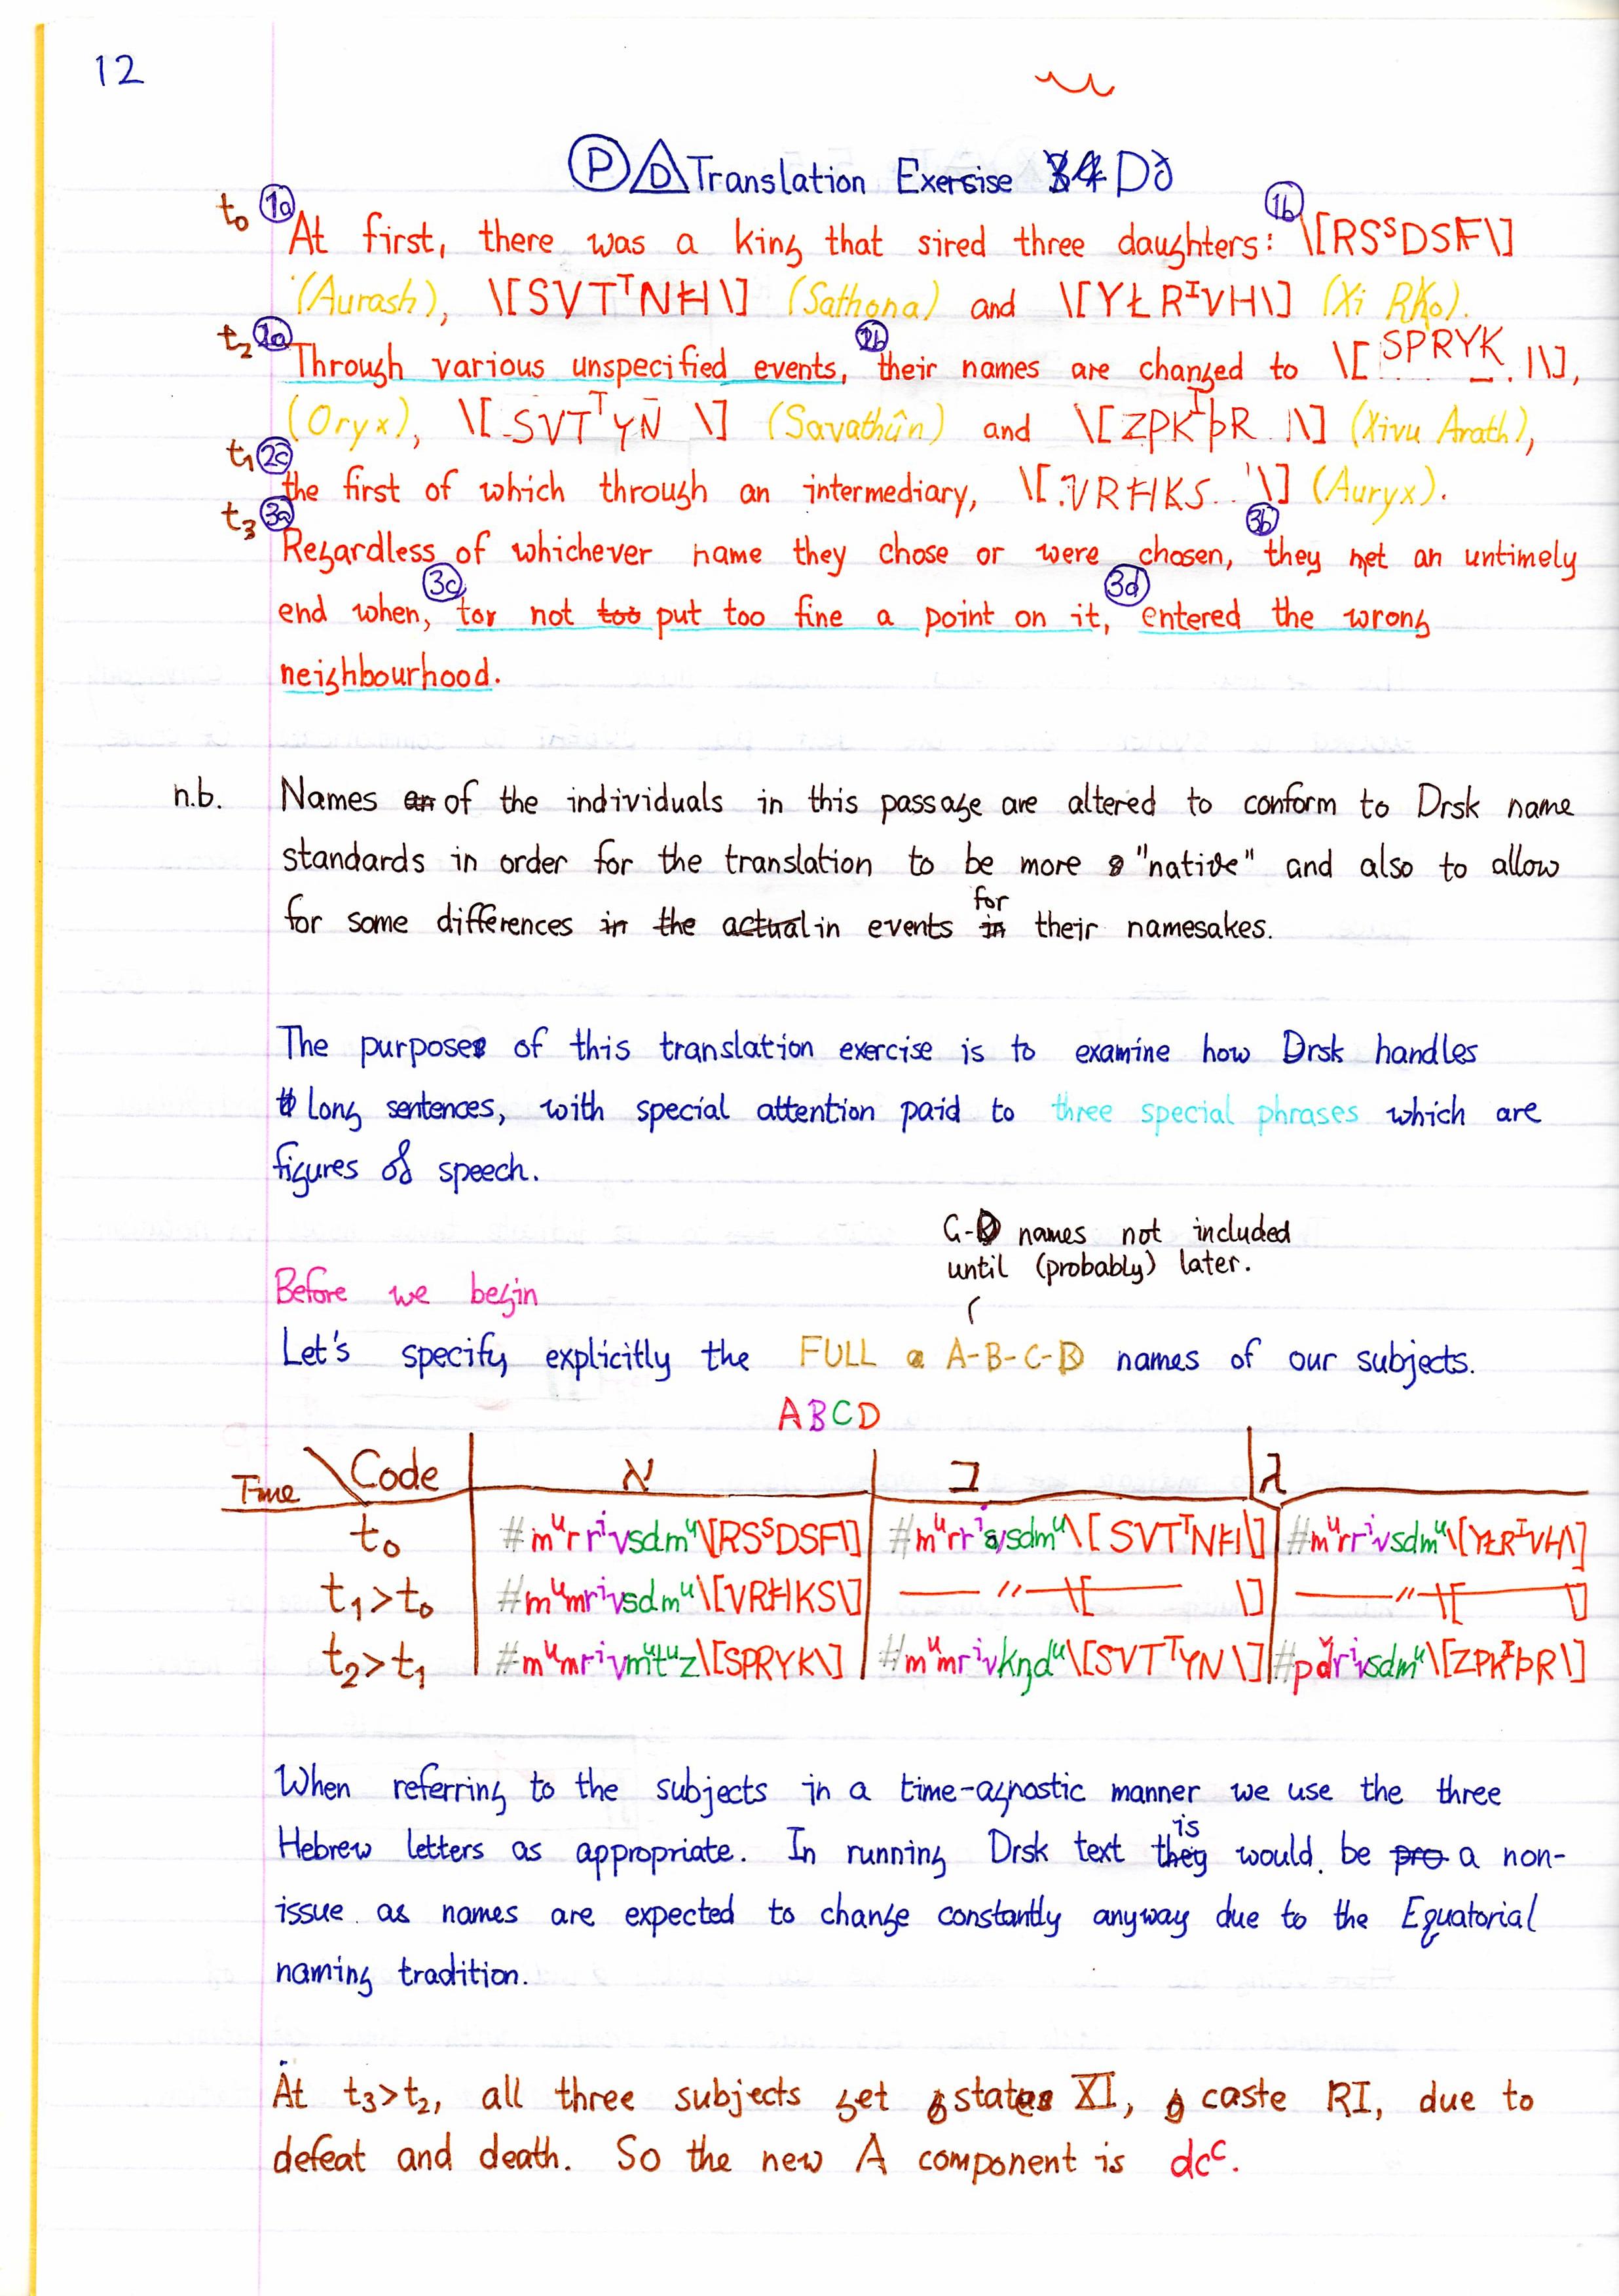 12
Ⓟ D Translation Exersise D
t₀ 1a At first, there was a king that sired three daughters: 1b \[RSˢDSF\]
(Aurash), \[SVTᵀNĦ\] (Sathona) and \[YŁRᴵVH\] (Xi Ro).
t₂ 2a Through various unspecified events, 2b their names are changed to \[SPRYK\],
(Oryx), \[SVTᵀYN\] (Savathûn) and \[ZPKᴵÞR\] (Xivu Arath),
t₁ 2c the first of which through an intermediary, \[VRĦKS\] (Auryx).
t₃ 3a Regardless of whichever name they chose or were chosen, 3b they met an untimely
end when, 3c to not too put too fine a point on it, 3d entered the wrong
neighbourhood.
n.b. Names an of the individuals in this passage are altered to conform to Drsk name
standards in order for the translation to be more "native" and also to allow
for
for some differences in the actual in events in their namesakes.
The purpose of this translation exercise is to examine how Drsk handles
Long sentences, with special attention paid to three special phrases which are
figures of speech.
C-D names not included
until (probably) later.
Before we begin
Let's specify explicitly the FULL A-B-C-D names of our subjects.
ABCD
Time \ Code א ב λ
t₀ #mᵘrrⁱvsdmᵘ\[RSˢDSF\] #mᵘrrⁱvsdmᵘ\[SVTᵀNĦ\] #mᵘrrⁱvsdmᵘ\[YŁRᴵVH\]
t₁>t₀ #mᵘmrⁱvsdmᵘ\[VRĦKS\] — 〃 —\[ — \] — 〃 —\[ — \]
t₂>t₁ #mᵘmrⁱvmᵘtᵘz\[SPRYK\] #mᵘmrⁱvkŋdᵘ\[SVTᵀYN\] #pďrⁱvsdmᵘ\[ZPKᴵÞR\]
When referring to the subjects in a time-agnostic manner we use the three
is
Hebrew letters as appropriate. In running Drsk text they would be pro a non-
issue as names are expected to change constantly anyway due to the Equatorial
naming tradition.
At t₃>t₂, all three subjects get status XI, caste RI, due to
defeat and death. So the new A component is dcᶜ.